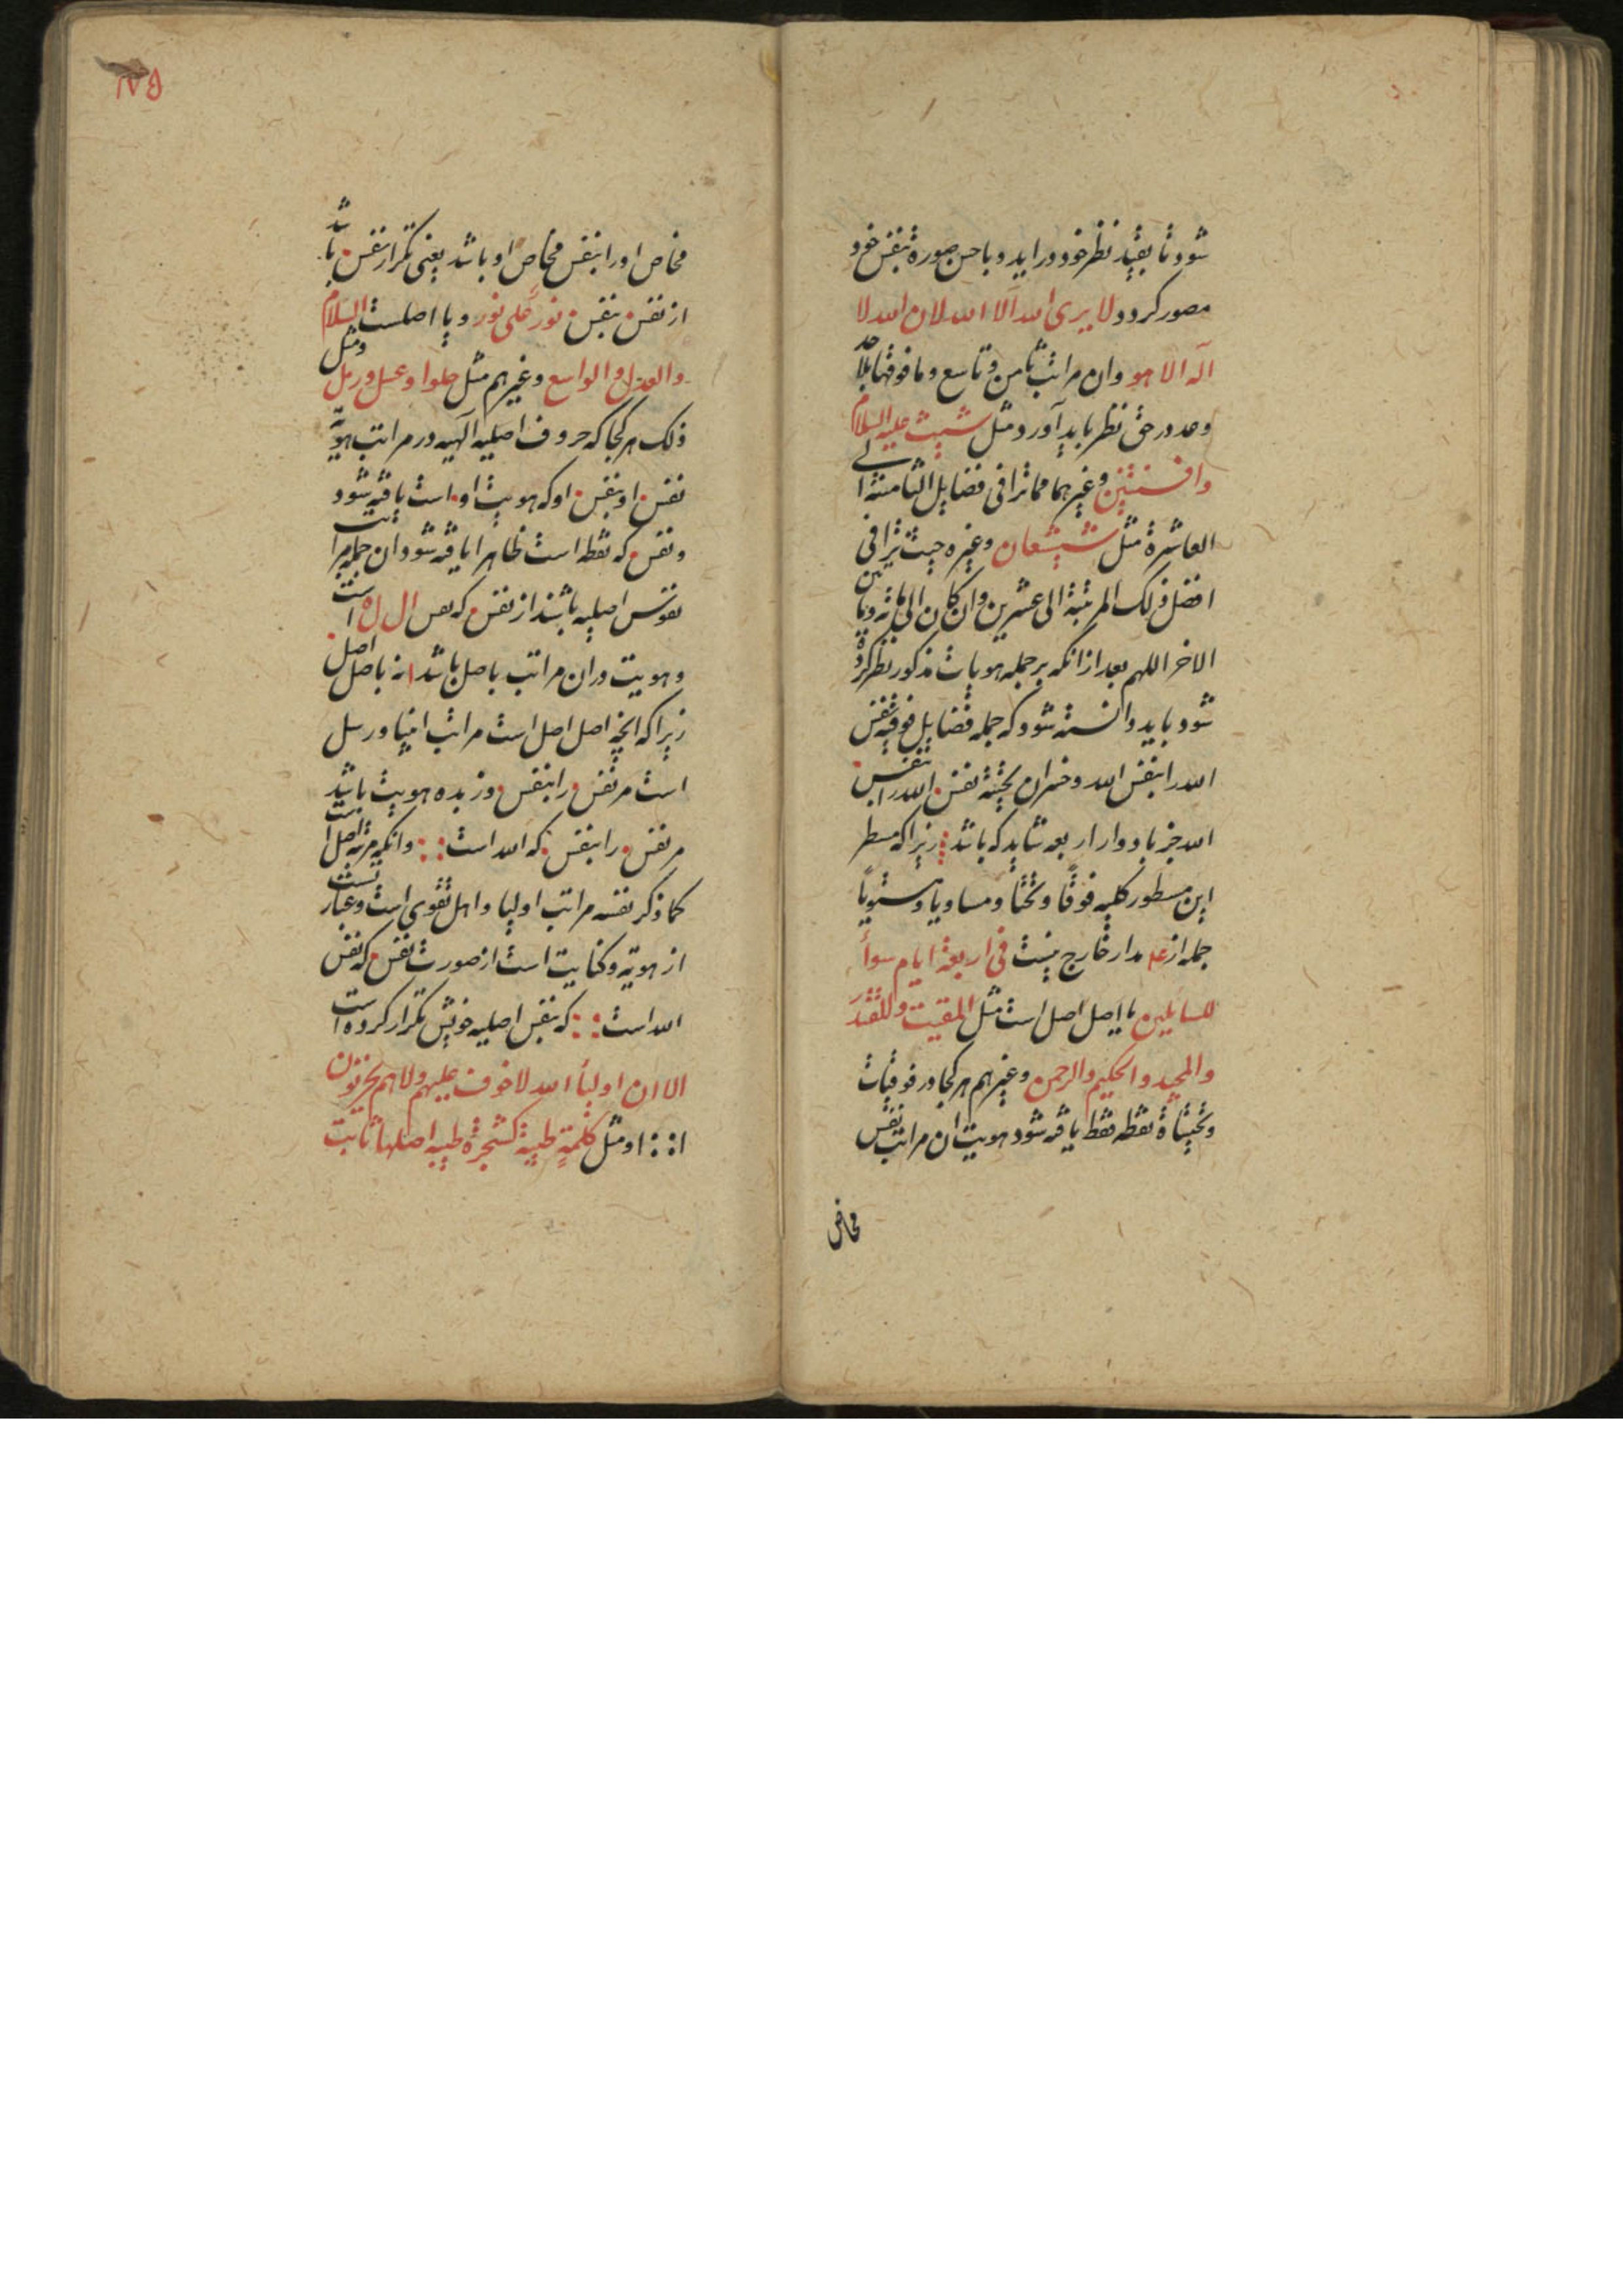 شود تا بقید نظر خود در اید و باحسن صورة بنفس خود
مصور کردد لا یری الله آلا الله لان الله لا
اله الا هو وان مراتب ثامن و تاسع وما فوقها بلا حد
وعد در حق نظر باید آورد مثل شیث علیه السلام
وافسنتین وغیرهما مما ترا فی فضایل الثامنة الی
العاشرة مثل شیشعان وغیره حیث ترا فی
افضل ذلک المرتبة الی عشرین وان کان الی مائه
الاخر اللهم بعد ازانکه بر جمله هویات مذکور نظر کرده
شود باید دانسته شود که جمله فضایل فوقیه نفس
الله را بنفس الله وخسران تحتیة نفس الله را بنفس
الله جز با دوار اربعه شاید که باشد زیرا که مسطر
این مسطور کلیه فوقًا وتحتًا ومساویا ومستویًا
جمله از مدار خارج نیست فی اربعة ایام سوأ
للسایلین یا اصل اصل است مثل المقیت
والمجید والحکیم والرحمن وغیرهم هر کجا در فوقیات
وتحتیاة نقطه نقط یافه شود هویت ان مراتب نفس
مخاص
۱۷۵
مخاص او را بنفس مخاص او باشد یعنی تکرار نفس باشد
از نفس بنفس نورٌ علی نور ویا اصلست السلام
والعدل والواسع وغیرهم مثل حلوا وعسل ورمل ومثل
ذلک هر کجا که حروف اصلیه آلهیه در مراتب هویّة
نفس او بنفس او که هویت او است یافه شود
ونفس که نقطه است ظاهرا یافه شود ان جمله مراتب
نفوس اصلیه باشند از نفس که نفس ال ل ه است
وهویت دران مراتب باصل باشد نه باصل اصل
زیرا که انچه اصل اصل است مراتب انبیا ورسل
است مر نفس را بنفس وزبده هویت باشد
مر نفس را بنفس که الله است وانکه مرتبه اصل است
کما ذکر نفسه مراتب اولیا واهل تقوی است وعبارتست
از هویّه وکنایت است از صورت نفس که نفس
الله است که بنفس اصلیه خویش تکرار کرده است
الا ان اولیأ الله لا خوف علیهم ولا هم یحزنون
او مثل کلمةٍ طیبة کشجرة طیبه اصلها ثابت